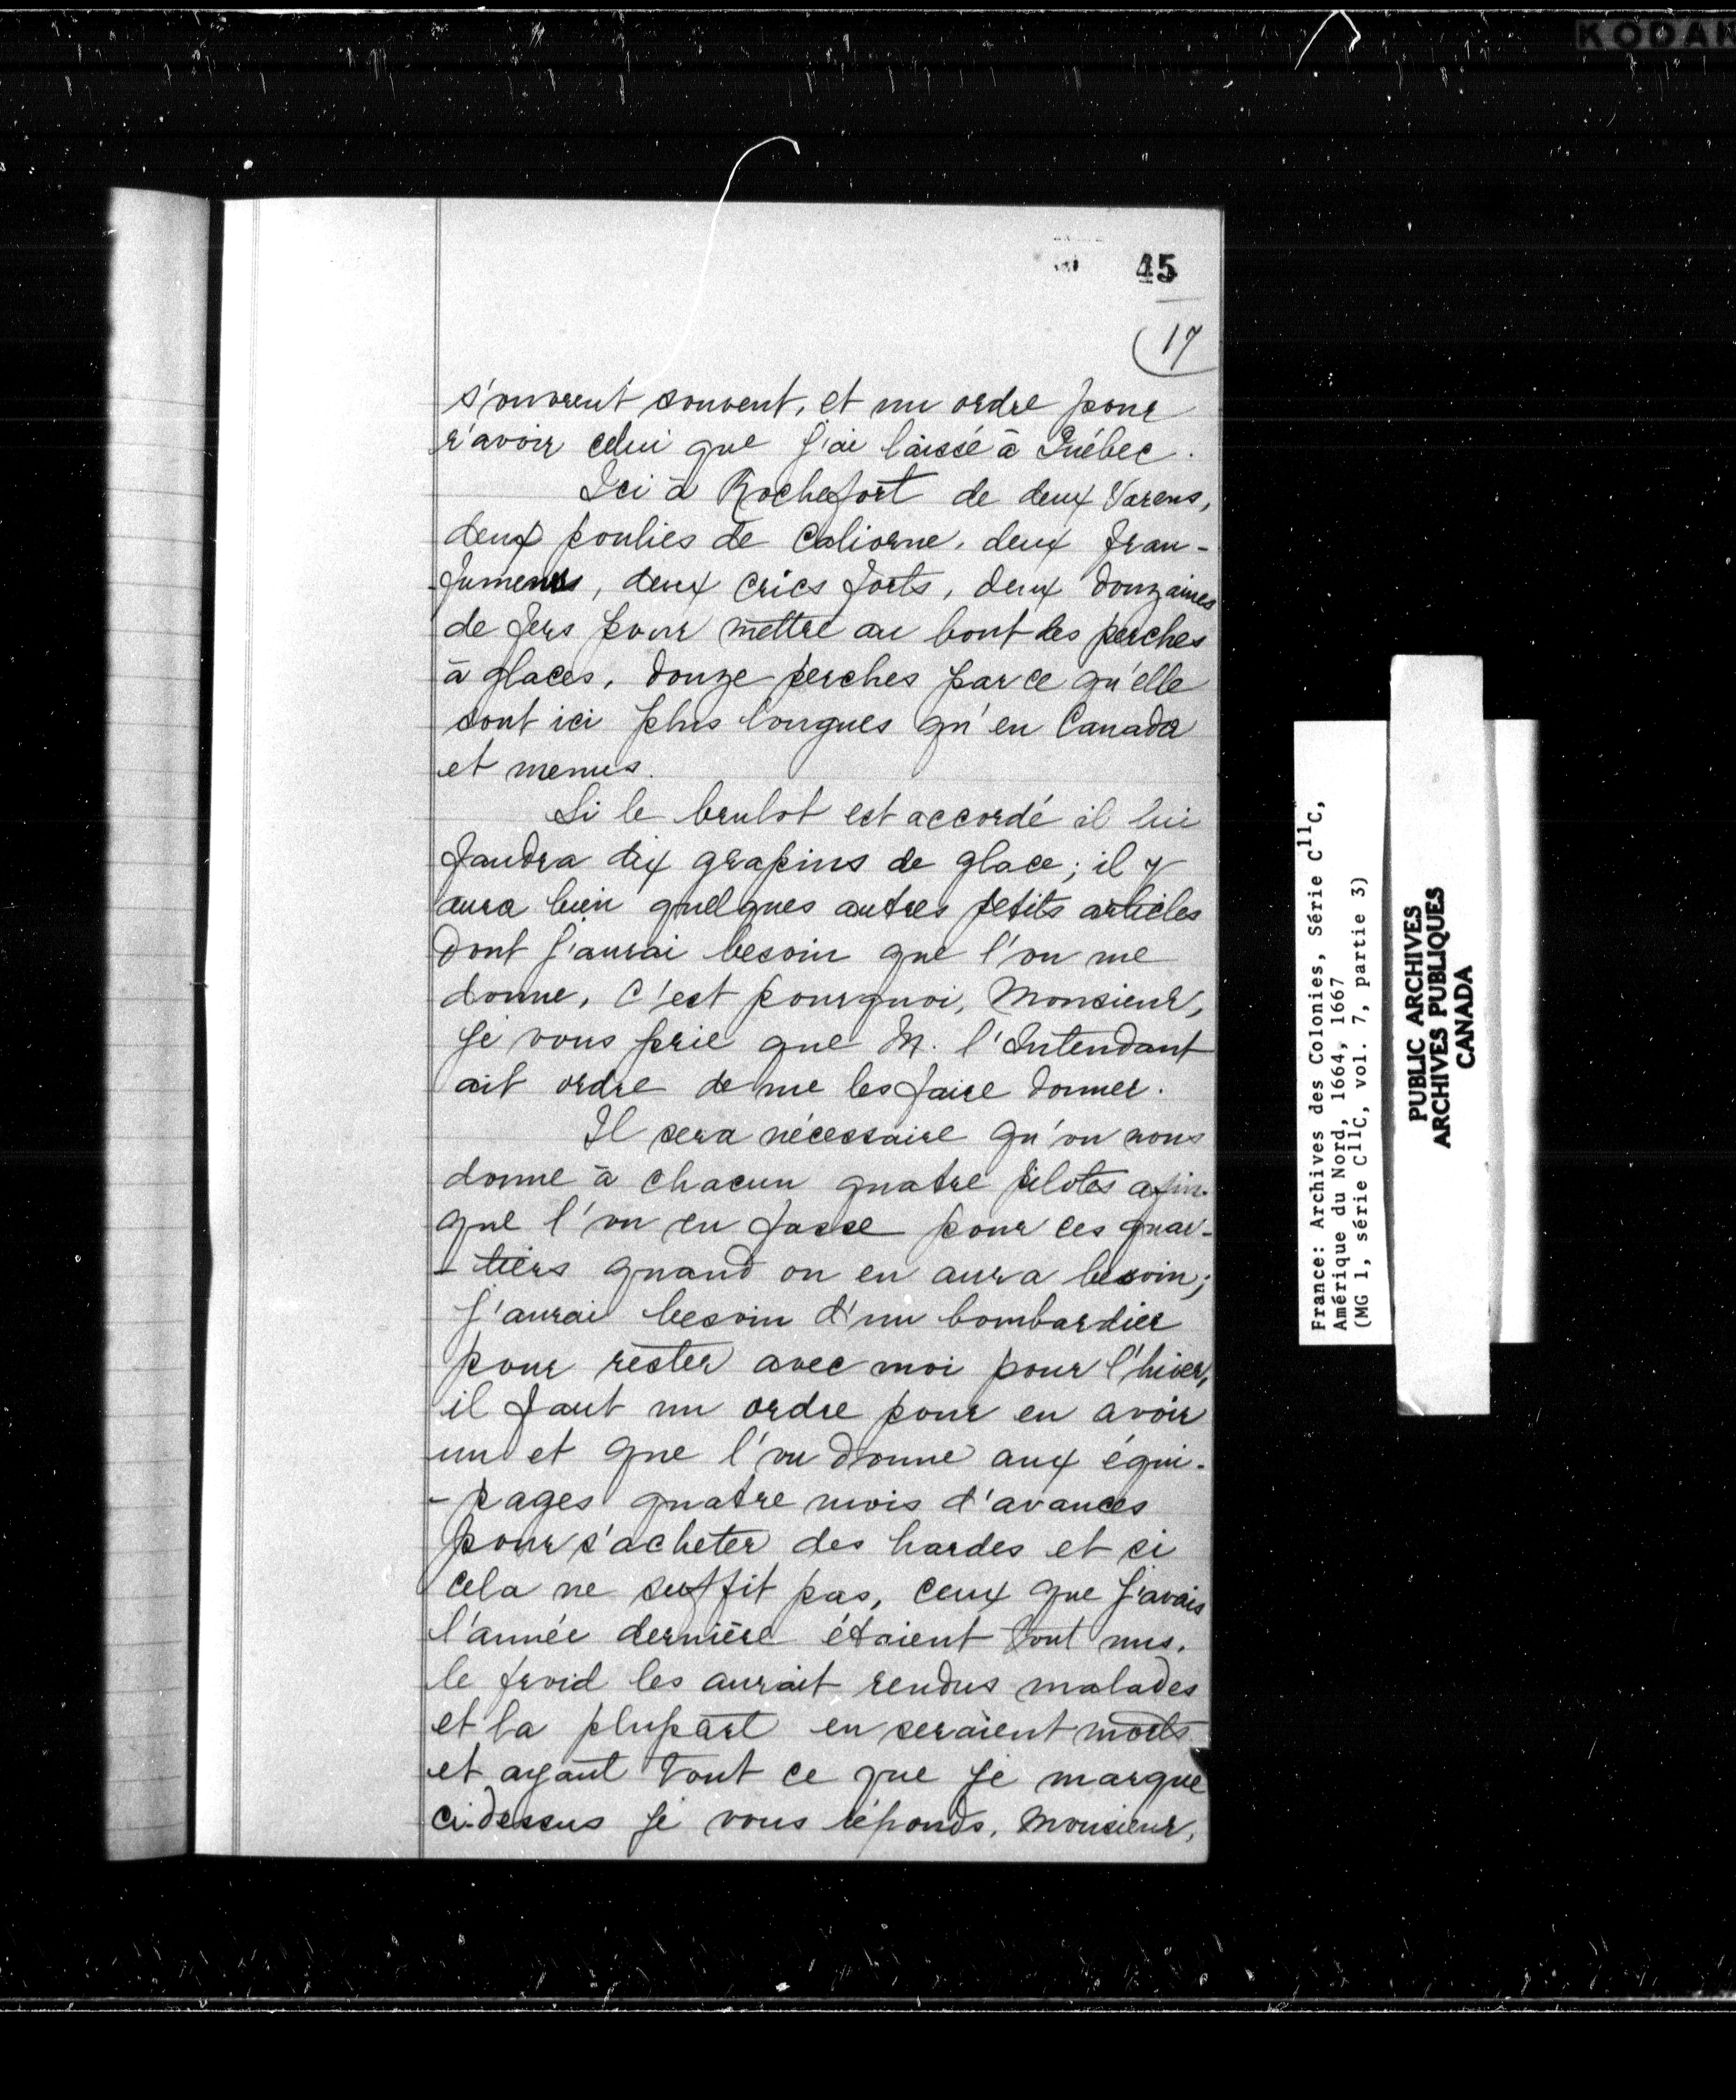 KODAK
45
17
s'ouvrent souvent, et un ordre pour
r'avoir celui que j'ai laissé à Québec.
Ici à Rochefort de deux Varens,
deux poulies de caliorne, deux fran-
-funems, deux crics forts, deux douzaines
de fers pour mettre au bout des perches
à glaces, douze perches parce qu'elle
sont ici plus longues qu'en Canada
et menus.
Si le brulot est accordé il lui
faudra dix grapins de glace; il y
aura bien quelques autres petits articles
dont j'aurai besoin que l'on me
donne, c'est pourquoi, Monsieur,
je vous prie que M. l'Intendant
ait ordre de me les faire donner.
Il sera nécessaire qu'on nous
donne à chacun quatre pilotes afin
que l'on en fasse pour ces quar-
-tiers quand on en aura besoin;
j'aurai besoin d'un bombardier
pour rester avec moi pour l'hiver,
il faut un ordre pour en avoir
un et que l'on donne aux équi-
-pages quatre mois d'avances
pour s'acheter des hardes et si
cela ne suffit pas, ceux que j'avais
l'année dernière étaient tout nus,
le froid les aurait rendus malades
et la plupart en seraient morts
et ayant tout ce que je marque
ci-dessus je vous réponds, Monsieur,
France: Archives des Colonies, Série C11C,
Amérique du Nord, 1664, 1667
(MG 1, série C11C, vol. 7, partie 3)
PUBLIC ARCHIVES
ARCHIVES PUBLIQUES
CANADA